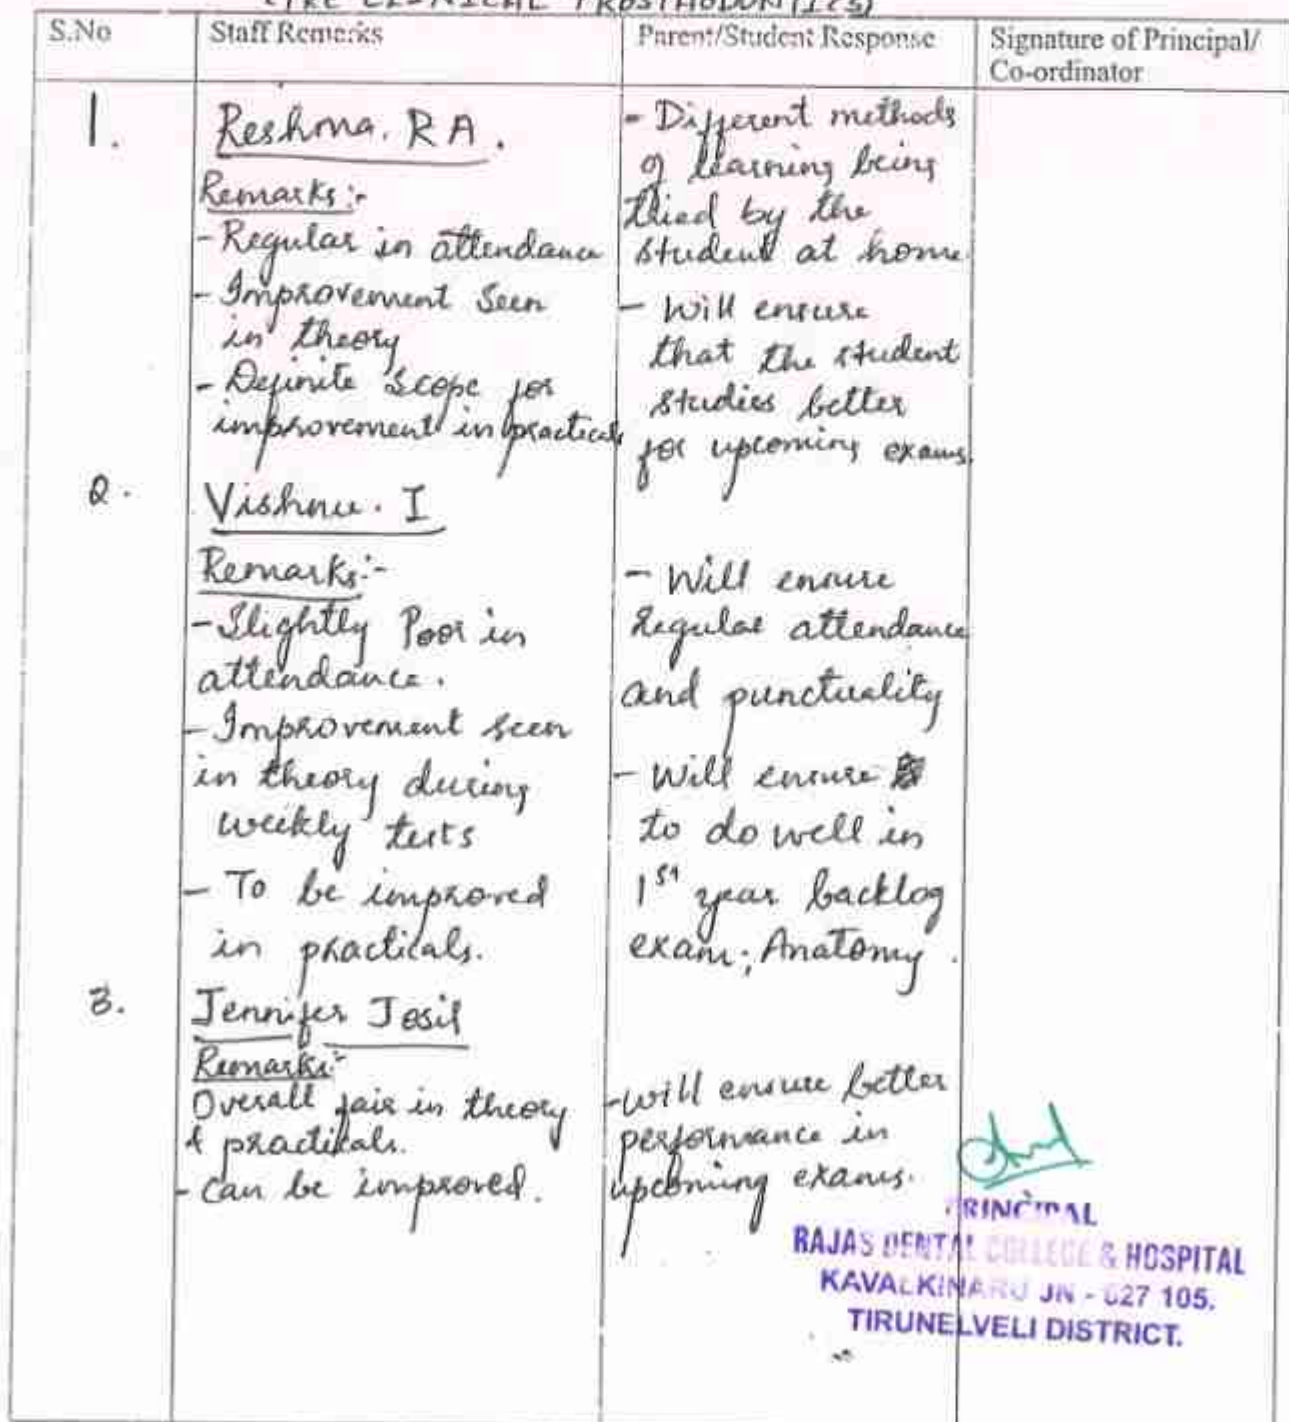 (PRE CLINICAL PROSTHODONTICS)
S.No
Staff Remarks
Parent/Student Response
Signature of Principal/
Co-ordinator
1.
Reshma. R A.
Remarks:-
- Regular in attendance
- Improvement seen
in theory
- Definite scope for
improvement in practicals
- Different methods
of learning being
tried by the
student at home
- Will ensure
that the student
studies better
for upcoming exams.
2.
Vishnu. I
Remarks:-
- Slightly Poor in
attendance.
- Improvement seen
in theory during
weekly tests
- To be improved
in practicals.
- Will ensure
Regular attendance
and punctuality
- Will ensure
to do well in
1st year backlog
exam; Anatomy.
3.
Jennifer Josil
Remarks:-
Overall fair in theory
& practicals.
- Can be improved.
- will ensure better
performance in
upcoming exams.
PRINCIPAL
RAJAS DENTAL COLLEGE & HOSPITAL
KAVALKINARU JN - 627 105.
TIRUNELVELI DISTRICT.